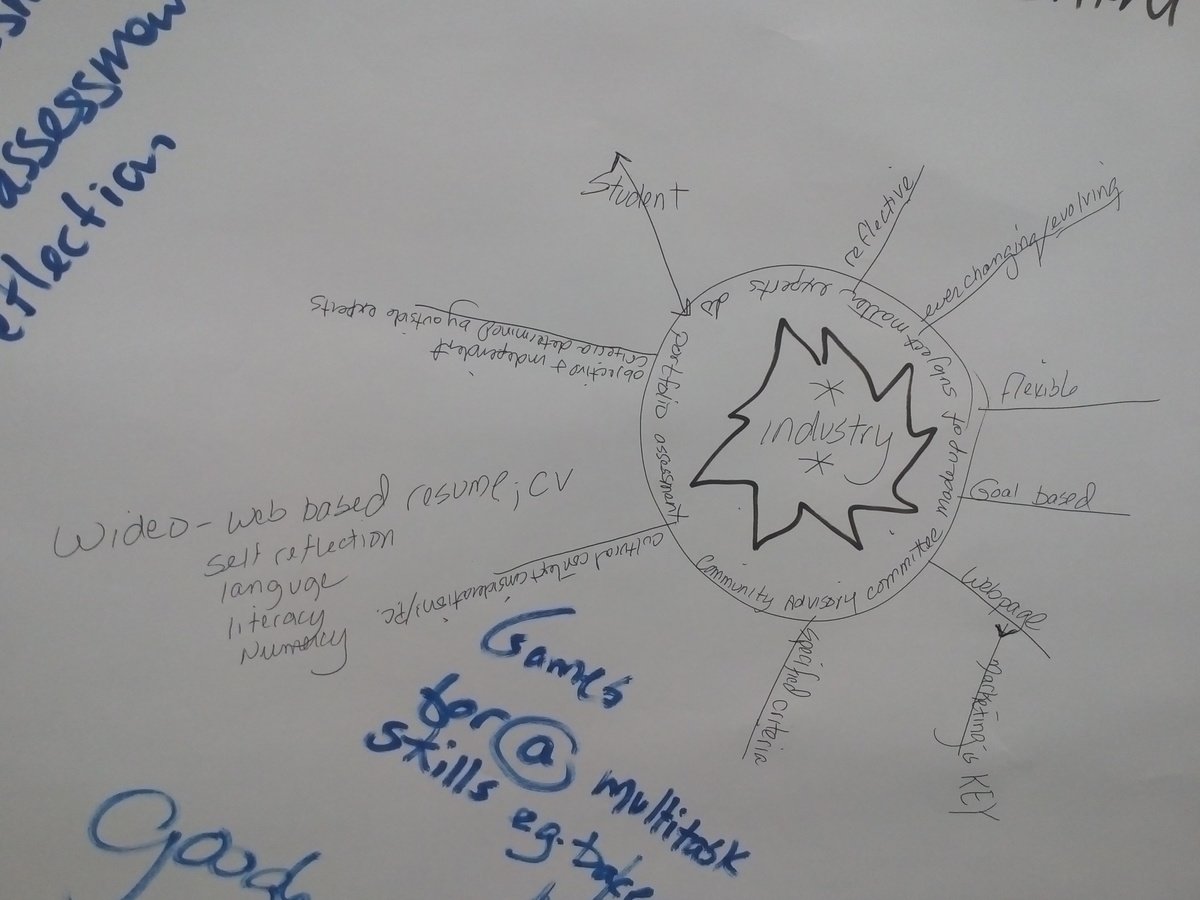 assessmen
eflection
Student
reflective
everchanging/evolving
flexible
Goal based
webpage
marketing is KEY
specified criteria
cultural context considerations/PC.
objective & independent
criteria determined by outside experts
portfolio assessment
subject matter experts
community advisory committee
* industry *
Wideo - web based resume, CV
self reflection
languge
literacy
Numercy
Games
for @ multitask
skills eg.
Good